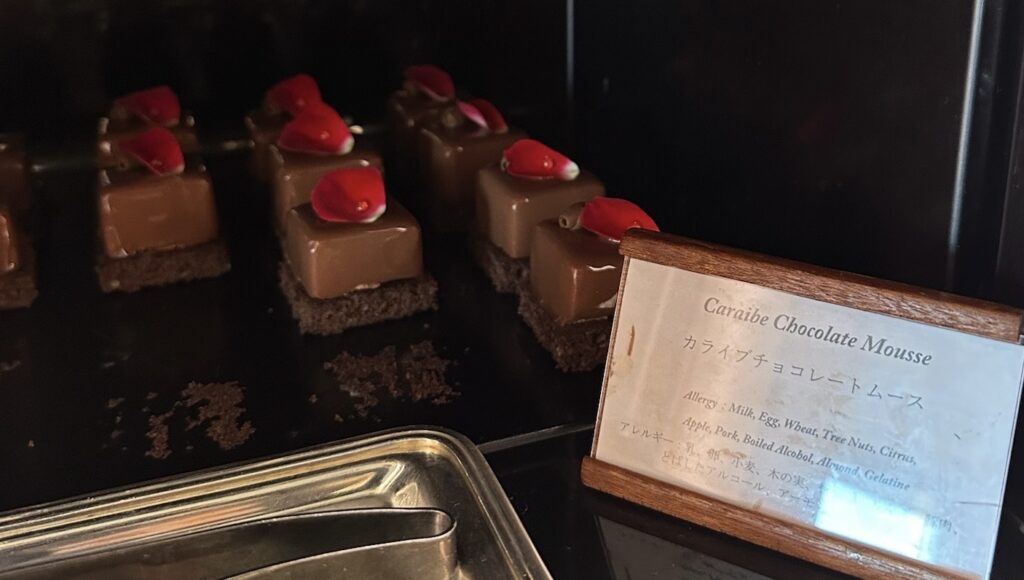 Caraibe Chocolate Mousse
カライブチョコレートムース
Allergy : Milk, Egg, Wheat, Tree Nuts, Citrus,
Apple, Pork, Boiled Alcohol, Almond, Gelatine
アレルギー：乳、卵、小麦、木の実、
とばしたアルコール、アーモ